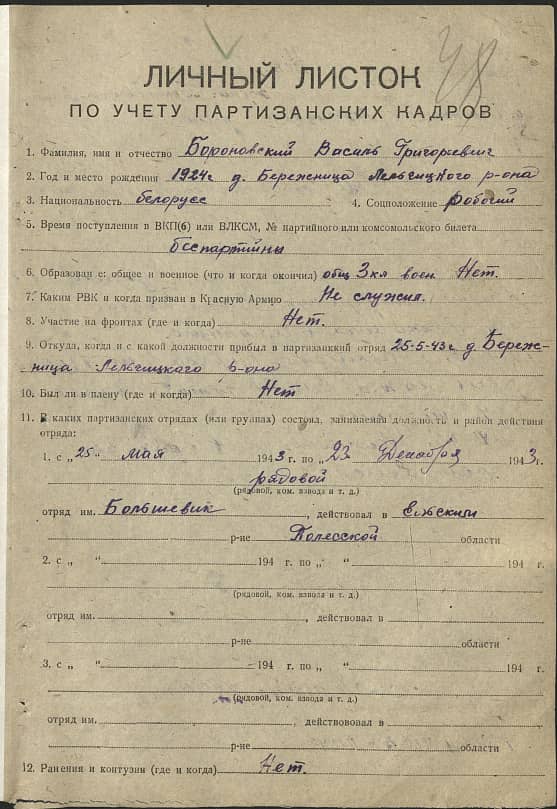 48
ЛИЧНЫЙ ЛИСТОК
ПО УЧЕТУ ПАРТИЗАНСКИХ КАДРОВ
1. Фамилия, имя и отчество Бороновский Василь Григорьевич
2. Год и место рождения 1924г д. Бережница Лельчицкого р-она
3. Национальность белорусс 4. Соцположение рабогий
5. Время поступления в ВКП(б) или ВЛКСМ, № партийного или комсомольского билета
беспартийны
6. Образование: общее и военное (что и когда окончил) общ 3 кл воен Нет.
7. Каким РВК и когда призван в Красную Армию Не служил.
8. Участие на фронтах (где и когда) Нет.
9. Откуда, когда и с какой должности прибыл в партизанкий отряд 25-5-43г д. Береж-
ница Лельчицкого р-она
10. Был ли в плену (где и когда) Нет
11. В каких партизанских отрядах (или группах) состоял, занимаемая должность и район действия
отряда:
1. с „ 25 „ мая 1943 г. по „ 23 Декабря 1943 г.
рядовой
(рядовой, ком. взвода и т. д.)
отряд им. Большевик , действовал в Ельским
р-не Полесской области
2. с „ “ 194 г. по „ “ 194 г.
(рядовой, ком. взвода и т. д.)
отряд им. , действовал в
р-не области
3. с „ “ 194 г. по „ “ 194 г.
(рядовой, ком. взвода и т. д.)
отряд им. , действововал в
р-не области
12. Ранения и контузии (где и когда) Нет.